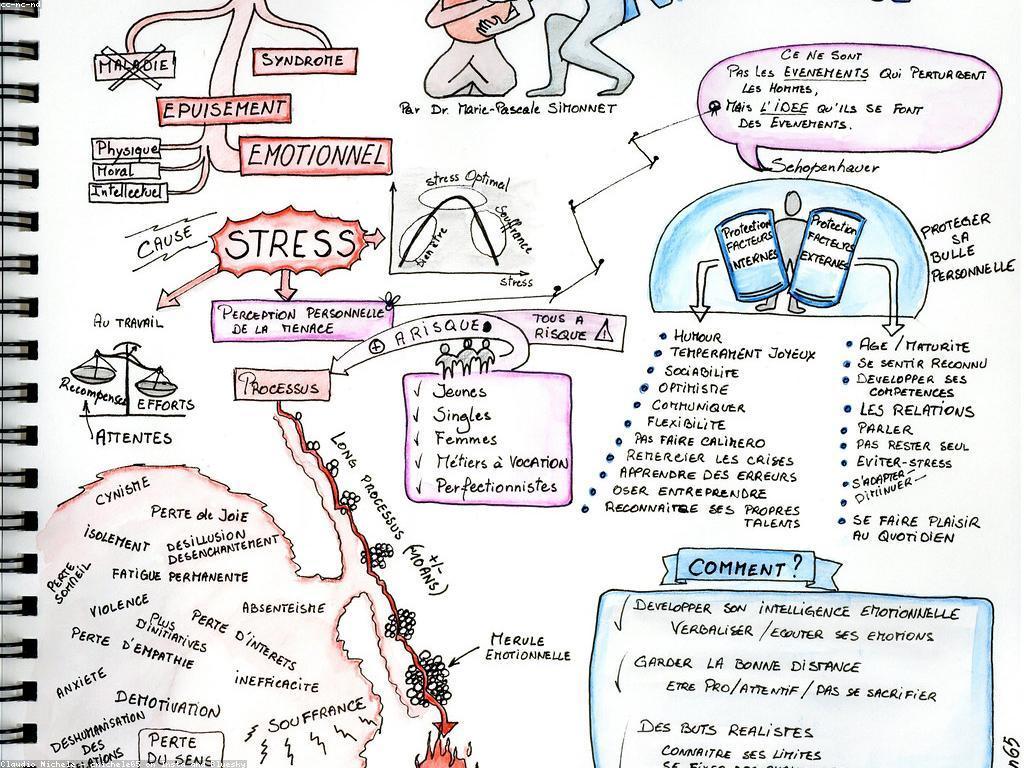 cc-nc-nd
MALADIE
SYNDROME
EPUISEMENT
Physique
Moral
Intellectuel
EMOTIONNEL
Par Dr. Marie-Pascale SIMONNET
CE NE SONT
PAS LES EVENEMENTS QUI PERTURBENT
LES HOMMES,
MAIS L'IDEE QU'ILS SE FONT
DES EVENEMENTS.
Schopenhauer
CAUSE
STRESS
stress Optimal
bien être
Souffrance
stress
PERCEPTION PERSONNELLE
DE LA MENACE
AU TRAVAIL
Recompenses
EFFORTS
ATTENTES
+ A RISQUE
TOUS A
RISQUE
PROCESSUS
✓ Jeunes
✓ Singles
✓ Femmes
✓ Métiers à VOCATION
✓ Perfectionnistes
LONG PROCESSUS (+/-
MERULE
EMOTIONNELLE
Protection
FACTEURS
INTERNES
Protection
FACTEURS
EXTERNES
PROTEGER
SA
BULLE
PERSONNELLE
• HUMOUR
• TEMPERAMENT JOYEUX
• SOCIABILITE
• OPTIMISME
• COMMUNIQUER
• FLEXIBILITE
• PAS FAIRE CALIMERO
• REMERCIER LES CRISES
• APPRENDRE DES ERREURS
• OSER ENTREPRENDRE
• RECONNAITRE SES PROPRES
TALENTS
• AGE / MATURITE
• SE SENTIR RECONNU
• DEVELOPPER SES
COMPETENCES
• LES RELATIONS
• PARLER
• PAS RESTER SEUL
• EVITER-STRESS
• S'ADAPTER-
• DIMINUER-
• SE FAIRE PLAISIR
AU QUOTIDIEN
CYNISME
PERTE de JOIE
ISOLEMENT
DESILLUSION
DESENCHANTEMENT
PERTE
SOMMEIL
FATIGUE PERMANENTE
VIOLENCE
ABSENTEISME
PLUS
D'INITIATIVES
PERTE D'INTERETS
PERTE D'EMPATHIE
ANXIETE
INEFFICACITE
DEMOTIVATION
SOUFFRANCE
DESHUMANISATION
DES
PERTE
DU SENS
COMMENT ?
DEVELOPPER SON INTELLIGENCE EMOTIONNELLE
VERBALISER / ECOUTER SES EMOTIONS
GARDER LA BONNE DISTANCE
ETRE PRO / ATTENTIF / PAS SE SACRIFIER
DES BUTS REALISTES
CONNAITRE SES LIMITES